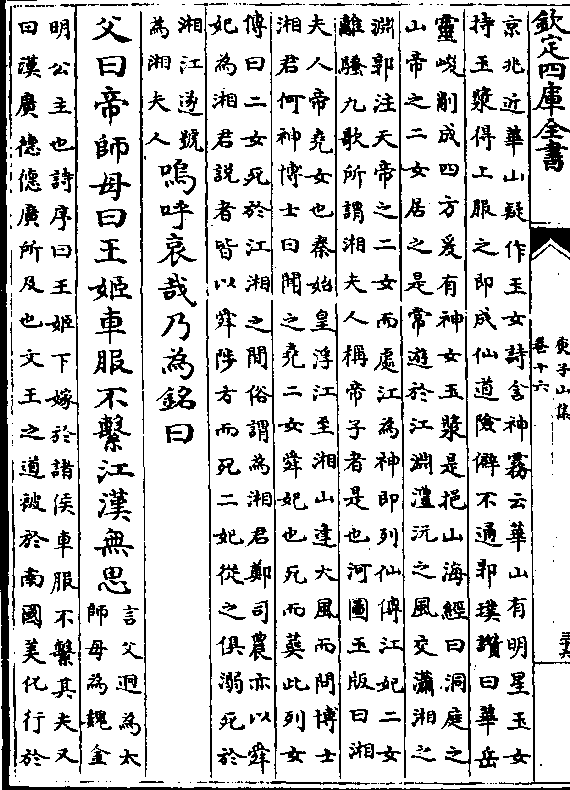 欽定四庫全書
庾子山集
卷十六
京兆近華山疑作玉女詩含神霧云華山有明星玉女
持玉漿得上服之即成仙道險僻不通郭璞讚曰華岳
靈峻削成四方爰有神女玉漿是挹山海經曰洞庭之
山帝之二女居之是常遊於江淵澧沅之風交瀟湘之
淵郭注天帝之二女而處江為神即列仙傳江妃二女
離騷九歌所謂湘夫人稱帝子者是也河圖玉版曰湘
夫人帝堯女也秦始皇浮江至湘山逢大風而問博士
湘君何神博士曰聞之堯二女舜妃也死而葬此列女
傳曰二女死於江湘之間俗謂為湘君鄭司農亦以舜
妃為湘君説者皆以舜陟方而死二妃從之俱溺死於
湘江遂號
為湘夫人
嗚呼哀哉乃為銘曰
父曰帝師母曰王姬車服不繫江漢無思
言父迥為太
師母為魏金
明公主也詩序曰王姬下嫁於諸侯車服不繫其夫又
曰漢廣德德廣所及也文王之道被於南國美化行於